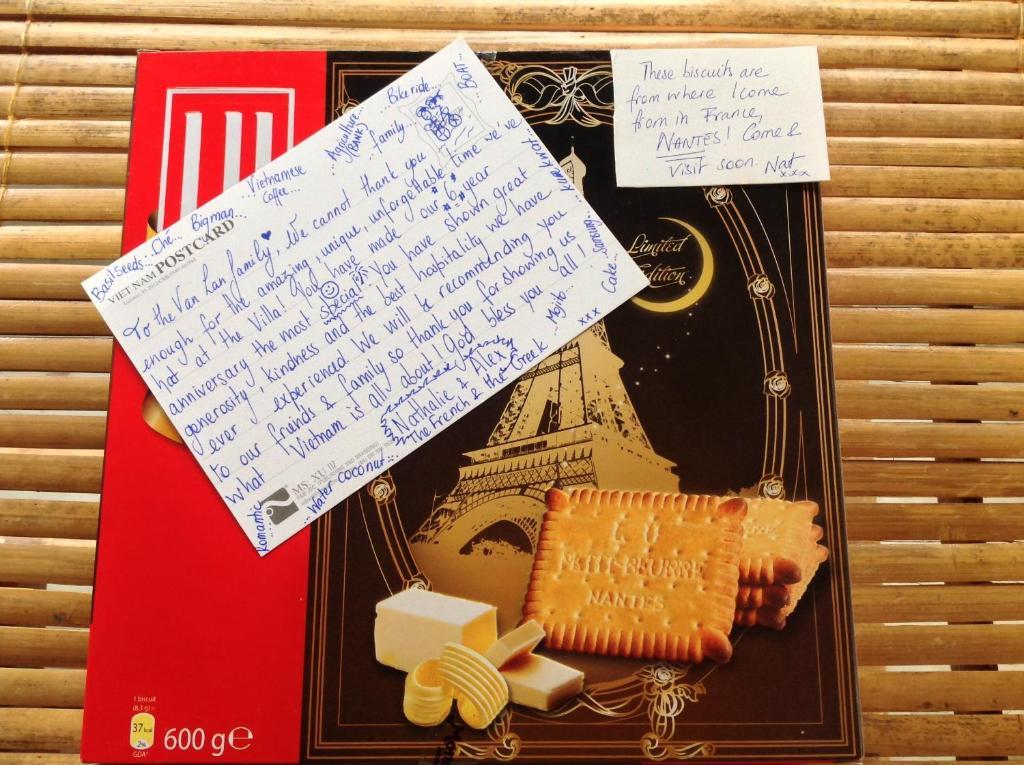 Basil seeds... Che... Bigman... Vietnamese Coffee... Agriculture BANK!... Bike ride... family... BOAT...
VIET NAM POSTCARD
To the Van Lan family, We cannot thank you
enough for the amazing, unique, unforgettable time we've
had at the Villa! You have made our 6 year
anniversary the most special yet. You have shown great
generosity, kindness and the best hospitality we have
ever experienced. We will be recommending you
to our friends & family so thank you for showing us
what Vietnam is all about. God bless you all!
Nathalie & Alex
The French & the Greek
xxx
Romantic...
...Water coconut...
...Mojito...
Cafe...
MS. XU III
These biscuits are
from where I come
from in France,
NANTES! Come &
Visit soon. Nat
xxx
Limited
Edition
LU
PETIT-BEURRE
NANTES
1 biscuit
(8,3 g) =
37 kcal
2%
GDA*
600 g e